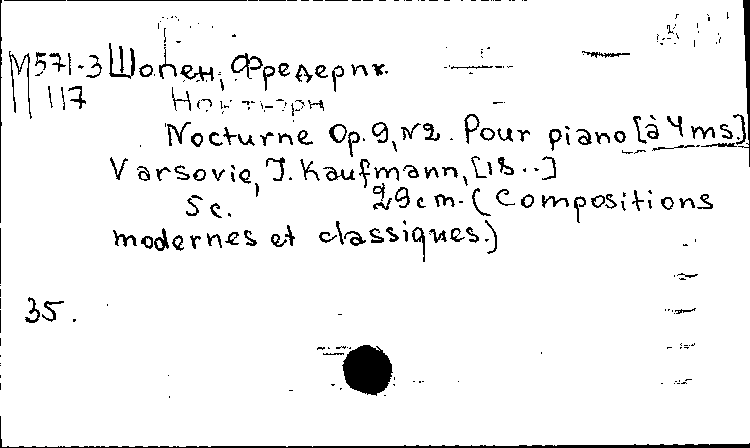 М571-3 Шопен, Фредерик.
117 Ноктюрн
Nocturne Op. 9, N2. Pour piano [à 4 ms.]
Varsovie, J. Kaufmann, [18..]
5 c. 29 cm. (Compositions
modernes et classiques.)
35.